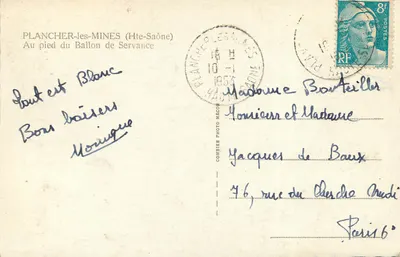 PLANCHER-les-MINES (Hte-Saône)
Au pied du Ballon de Servance
Tout est Blanc
Bons baisers
Monique
PLANCHER-LES-MINES
10 -1
1953
HTE SAONE
8F
RF
COMBIER PHOTO MACON
Madame Bouteiller
Monsieur et Madame
Jacques de Baux
76, rue du Cherche Midi
Paris 6e